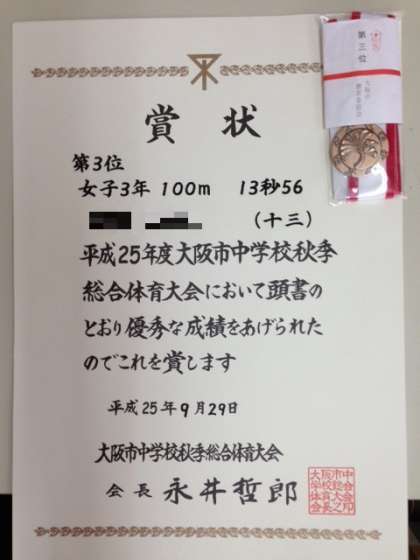 賞状
第3位
女子3年 100m 13秒56
(十三)
平成25年度大阪市中学校秋季
総合体育大会において頭書の
とおり優秀な成績をあげられた
のでこれを賞します
平成25年9月29日
大阪市中学校秋季総合体育大会
会長 永井哲郎
第三位